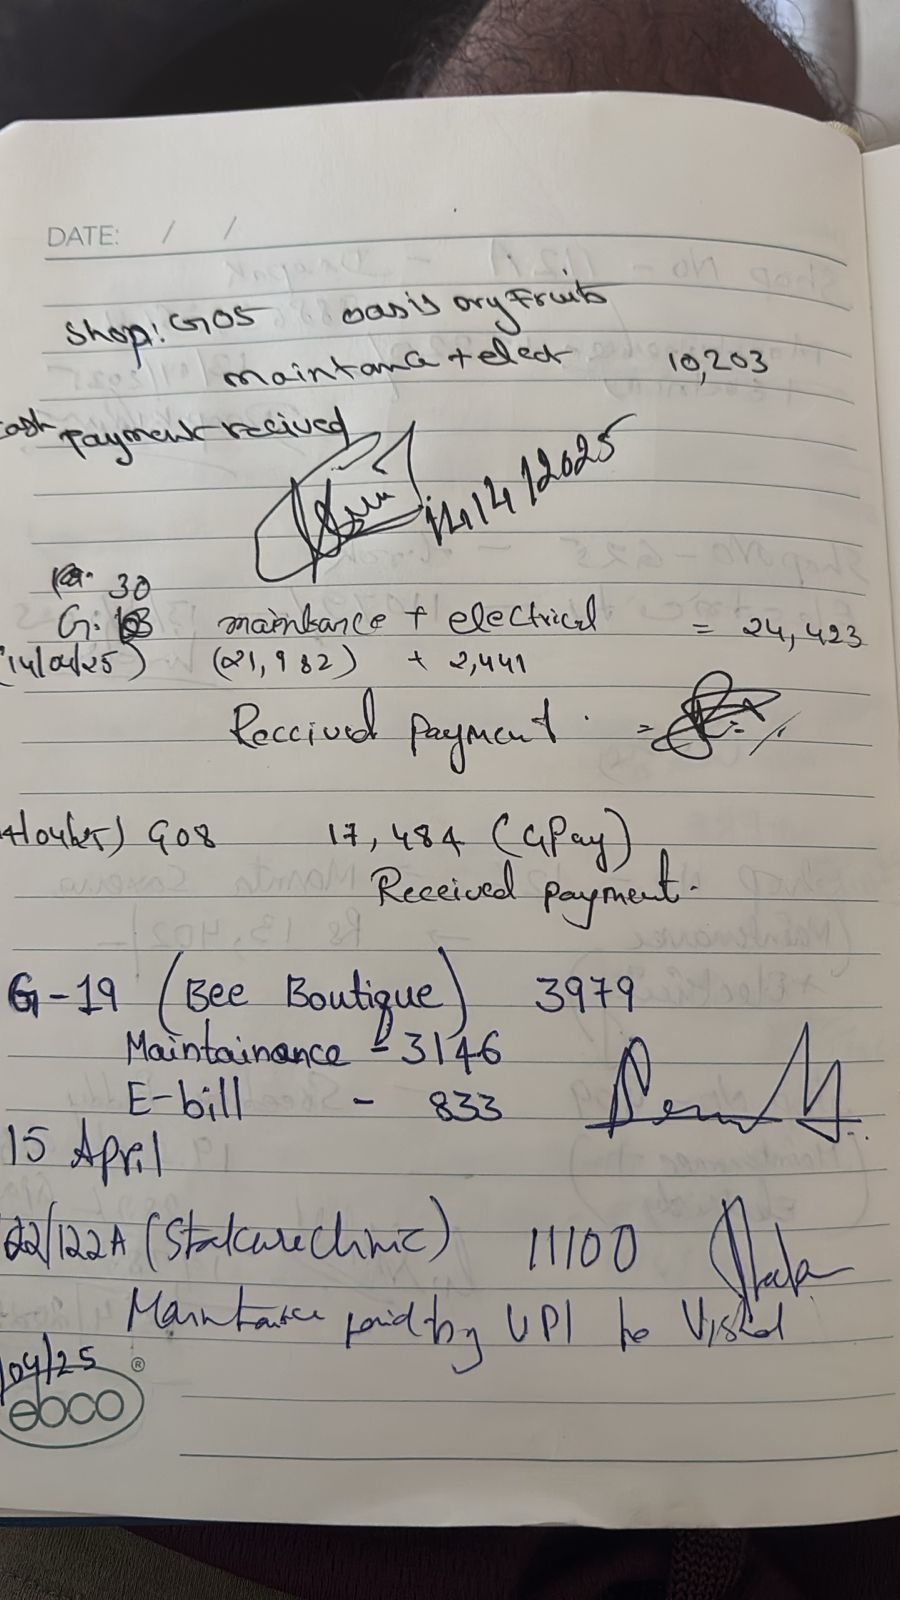 DATE: / /
Shop: G05 oasis dry Fruits
maintance + elect 10,203
cash payment recived
14/2025
30
G: maintance + electrical = 24,423
(14/04/25) (21,982) + 2,441
Received payment =
4/04/25) G08 17,484 (GPay)
Received payment.
G-19 (Bee Boutique) 3979
Maintainance - 3146
E-bill - 833
15 April
22/122A 11100
paid by UPI to
/04/25
ebco ®